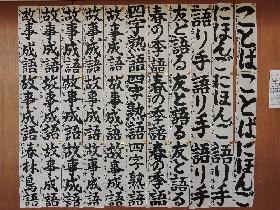 ことば ことば にほんご
にほんご にほんご 語り手
語り手 語り手 語り手
友と語る 友と語る 友と語る
春の季語 春の季語 春の季語
四字熟語 四字熟語 四字熟語
故事成語 故事成語 故事成語
故事成語 故事成語 故事成語
故事成語 故事成語 故事成語
故事成語 故事成語